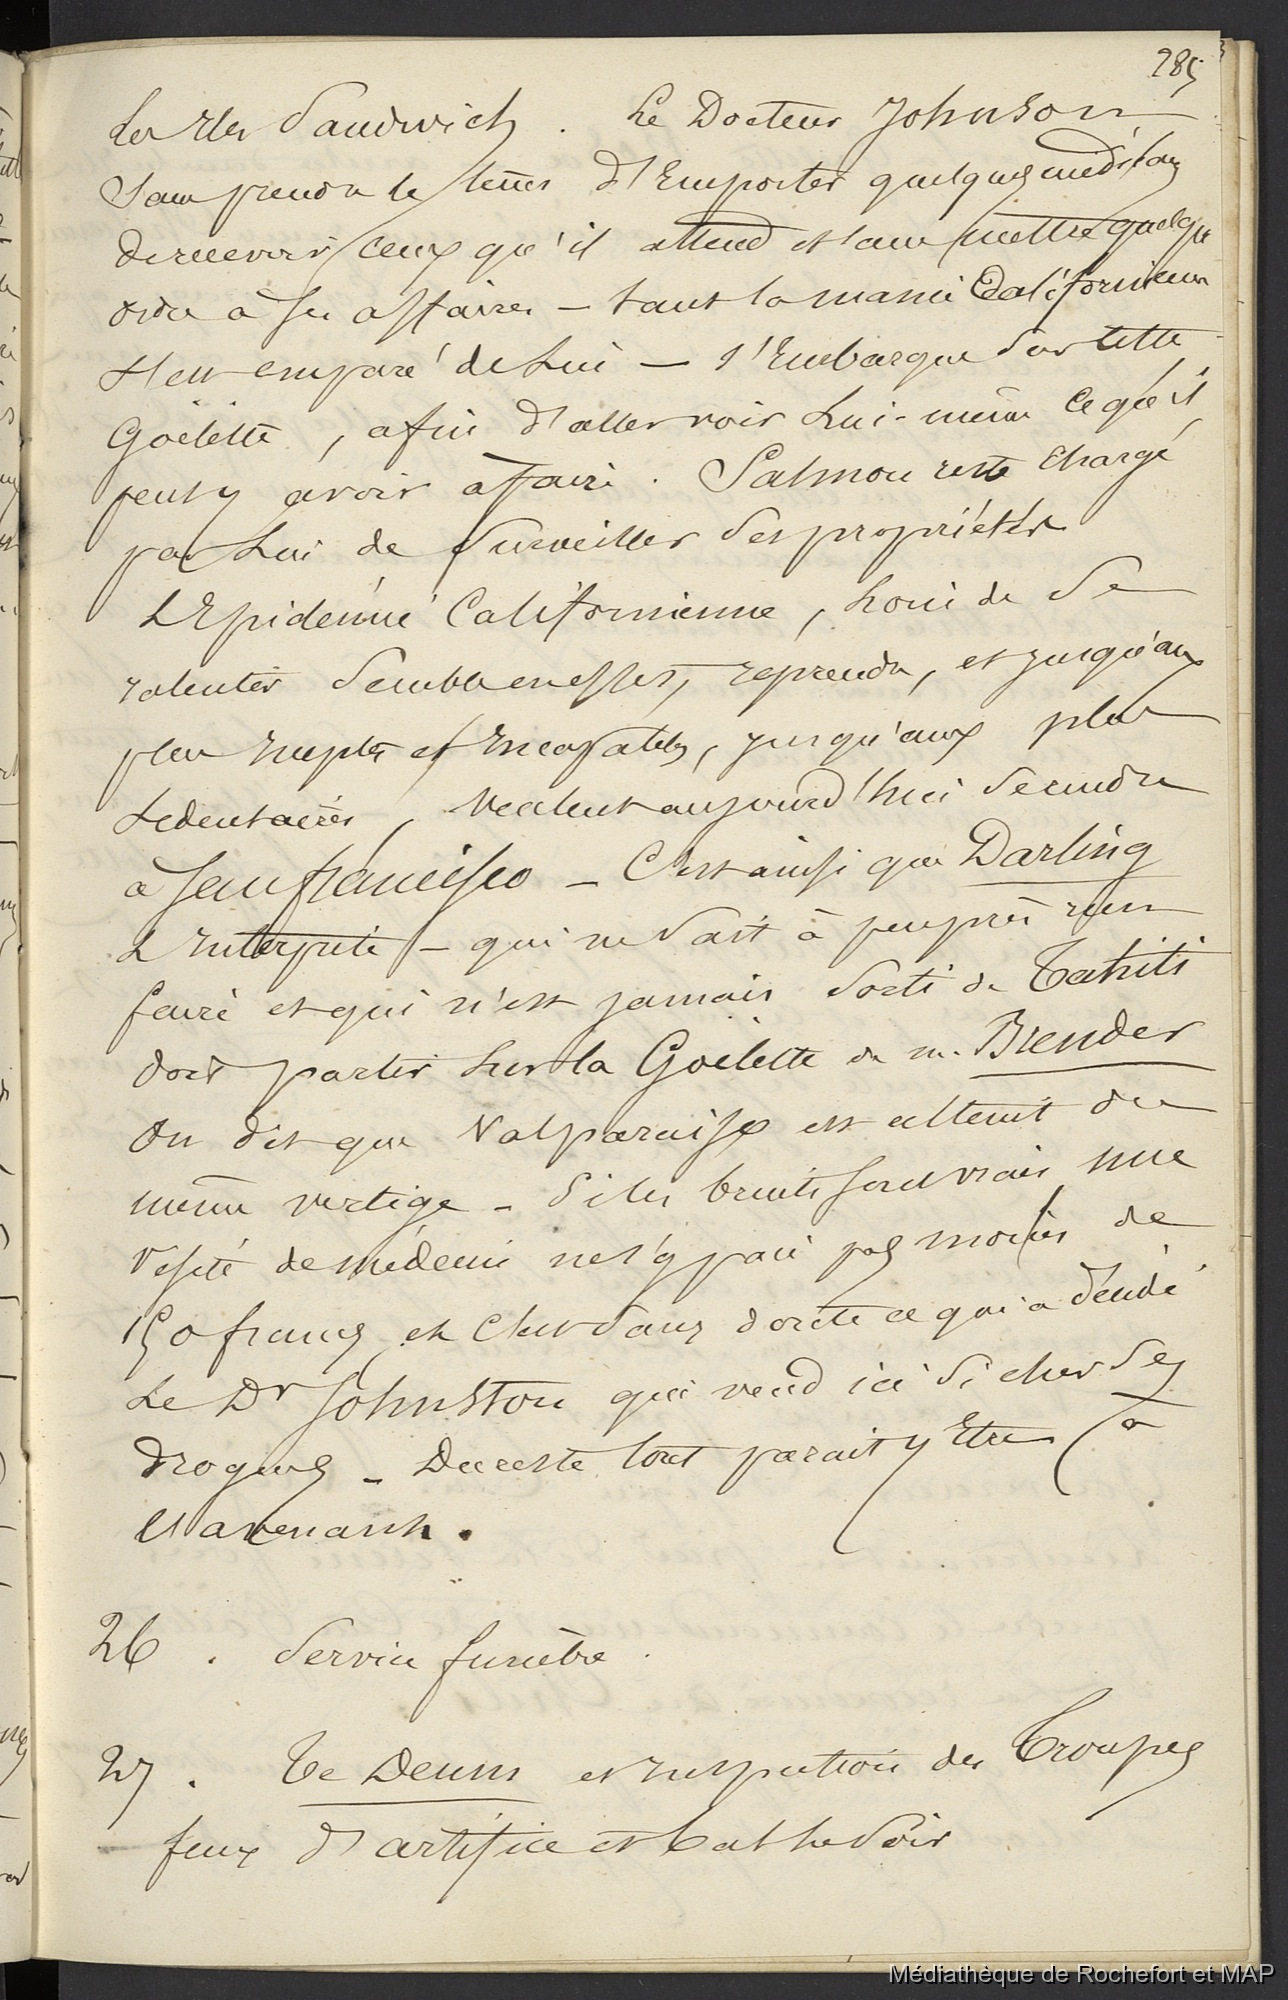 285
les Iles Sandwich. Le Docteur Johnson
sans prendre le tems d'Emporter quelques médic. sans
de recevoir ceux qu'il attend et sans mettre quelque
ordre à ses affaires – tant la manie Californienne
s'est emparé de Lui – s'Embarque sur cette
Goëlette, afin d'aller voir Lui-même ce qu'il
peut y avoir à faire. Salmon reste chargé
par Lui de Surveiller Ses propriétés
L'Epidémie Californienne, loin de Se
ralentir Semble en effet, reprendre, et jusqu'aux
plus Ineptes et Incapables, jusqu'aux plus
Sedentaires, Veulent aujourd'hui Se rendre
à San francisco – C'est ainsi que Darling
L'Interprete – qui ne Sait à peu près rien
faire et qui n'est jamais Sorti de Tahiti
doit partir Sur la Goëlette de m. Brender
On dit que Valparaiso est atteint du
même vertige – Si les bruits sont vrais, une
Visite de Médecin ne s'y paie pas moins de
150 francs, et c'est sans doute ce qui a décidé
Le Dr Johnston qui vend ici Si cher Ses
Drogues – Du reste tout parait y Etre à
l'avenant.
26. Service funèbre.
27. Te Deum et inspection des Troupes
feux d'artifice et bal le Soir
Médiathèque de Rochefort et MAP